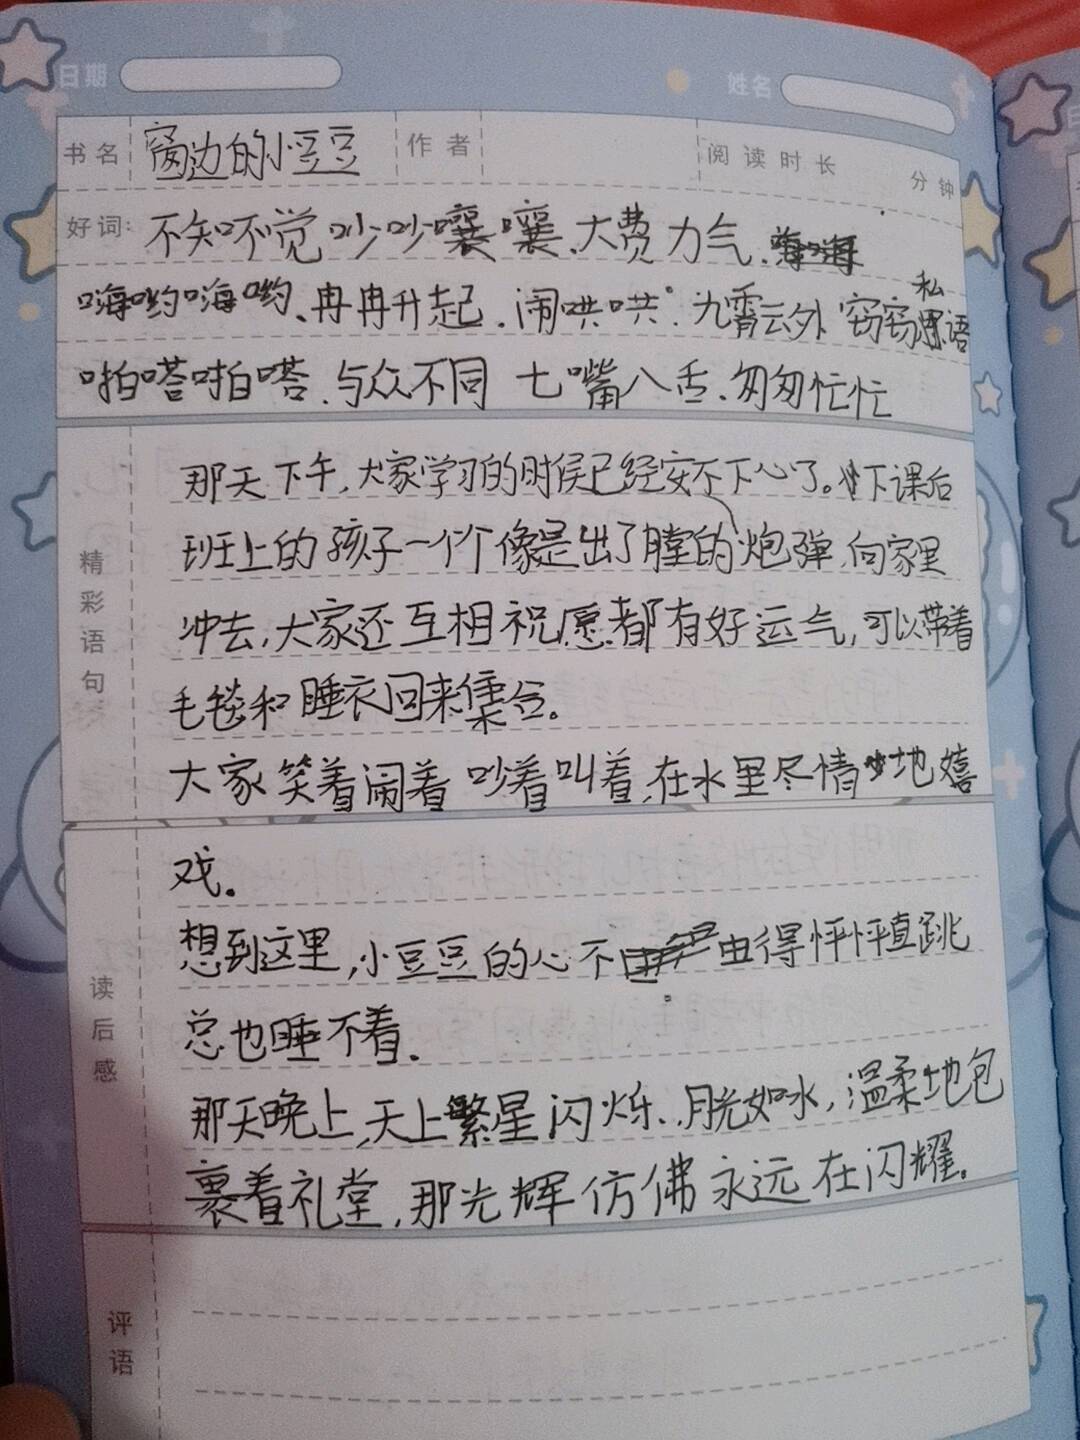 日期 姓名
书名 窗边的小豆豆 作者 阅读时长 分钟
好词: 不知不觉 吵吵嚷嚷、大费力气、
嗨哟嗨哟、冉冉升起、闹哄哄、九霄云外 窃窃私语
啪嗒啪嗒、与众不同 七嘴八舌、匆匆忙忙
精彩语句
那天下午,大家学习的时候已经安不下心了。下课后
班上的孩子一个个像是出了膛的炮弹,向家里
冲去,大家还互相祝愿都有好运气,可以带着
毛毯和睡衣回来集合。
大家笑着闹着吵着叫着,在水里尽情地嬉
读后感
戏。
想到这里,小豆豆的心不由得怦怦直跳
总也睡不着.
那天晚上,天上繁星闪烁.,月光如水,温柔地包
裹着礼堂,那光辉仿佛永远在闪耀。
评语